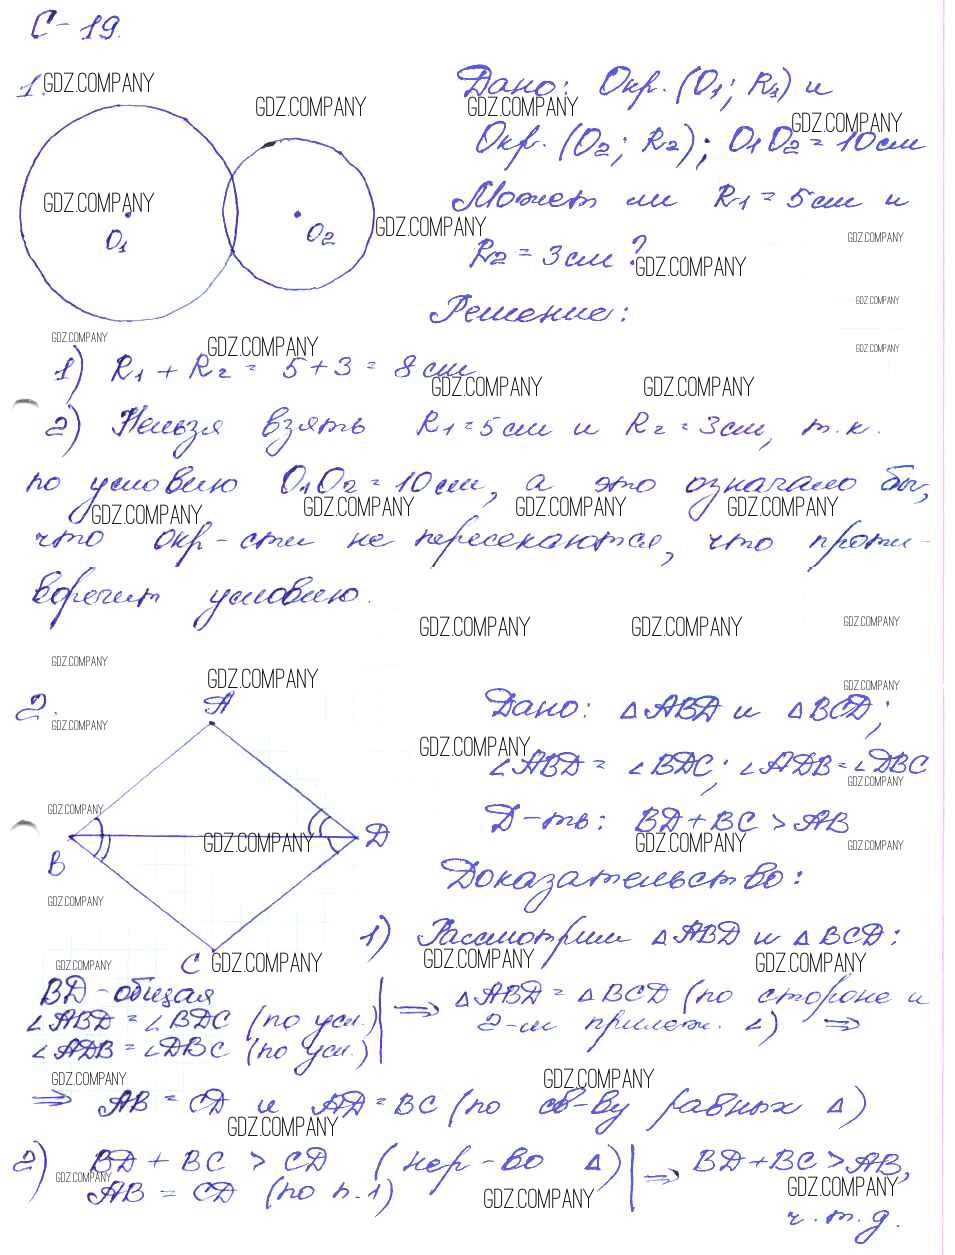 С-19.
1.
O₁
O₂
Дано: Окр. (O₁; R₁) и
Окр. (O₂; R₂); O₁O₂ = 10 см
Может ли R₁ = 5 см и
R₂ = 3 см?
Решение:
1) R₁ + R₂ = 5 + 3 = 8 см
2) Нельзя взять R₁ = 5 см и R₂ = 3 см, т.к.
по условию O₁O₂ = 10 см, а это означало бы,
что окр-сти не пересекаются, что проти-
воречит условию.
2.
A
B
C
D
Дано: △ABD и △BCD;
∠ABD = ∠BDC; ∠ADB = ∠DBC
Д-ть: BD + BC > AB
Доказательство:
1) Рассмотрим △ABD и △BCD:
BD - общая
∠ABD = ∠BDC (по усл.)
∠ADB = ∠DBC (по усл.)
⇒ △ABD = △BCD (по стороне и
2-м прилеж. ∠) ⇒
⇒ AB = CD и AD = BC (по св-ву равных △)
2) BD + BC > CD (нер-во △)
AB = CD (по п. 1)
⇒ BD + BC > AB,
ч.т.д.
GDZ.COMPANY